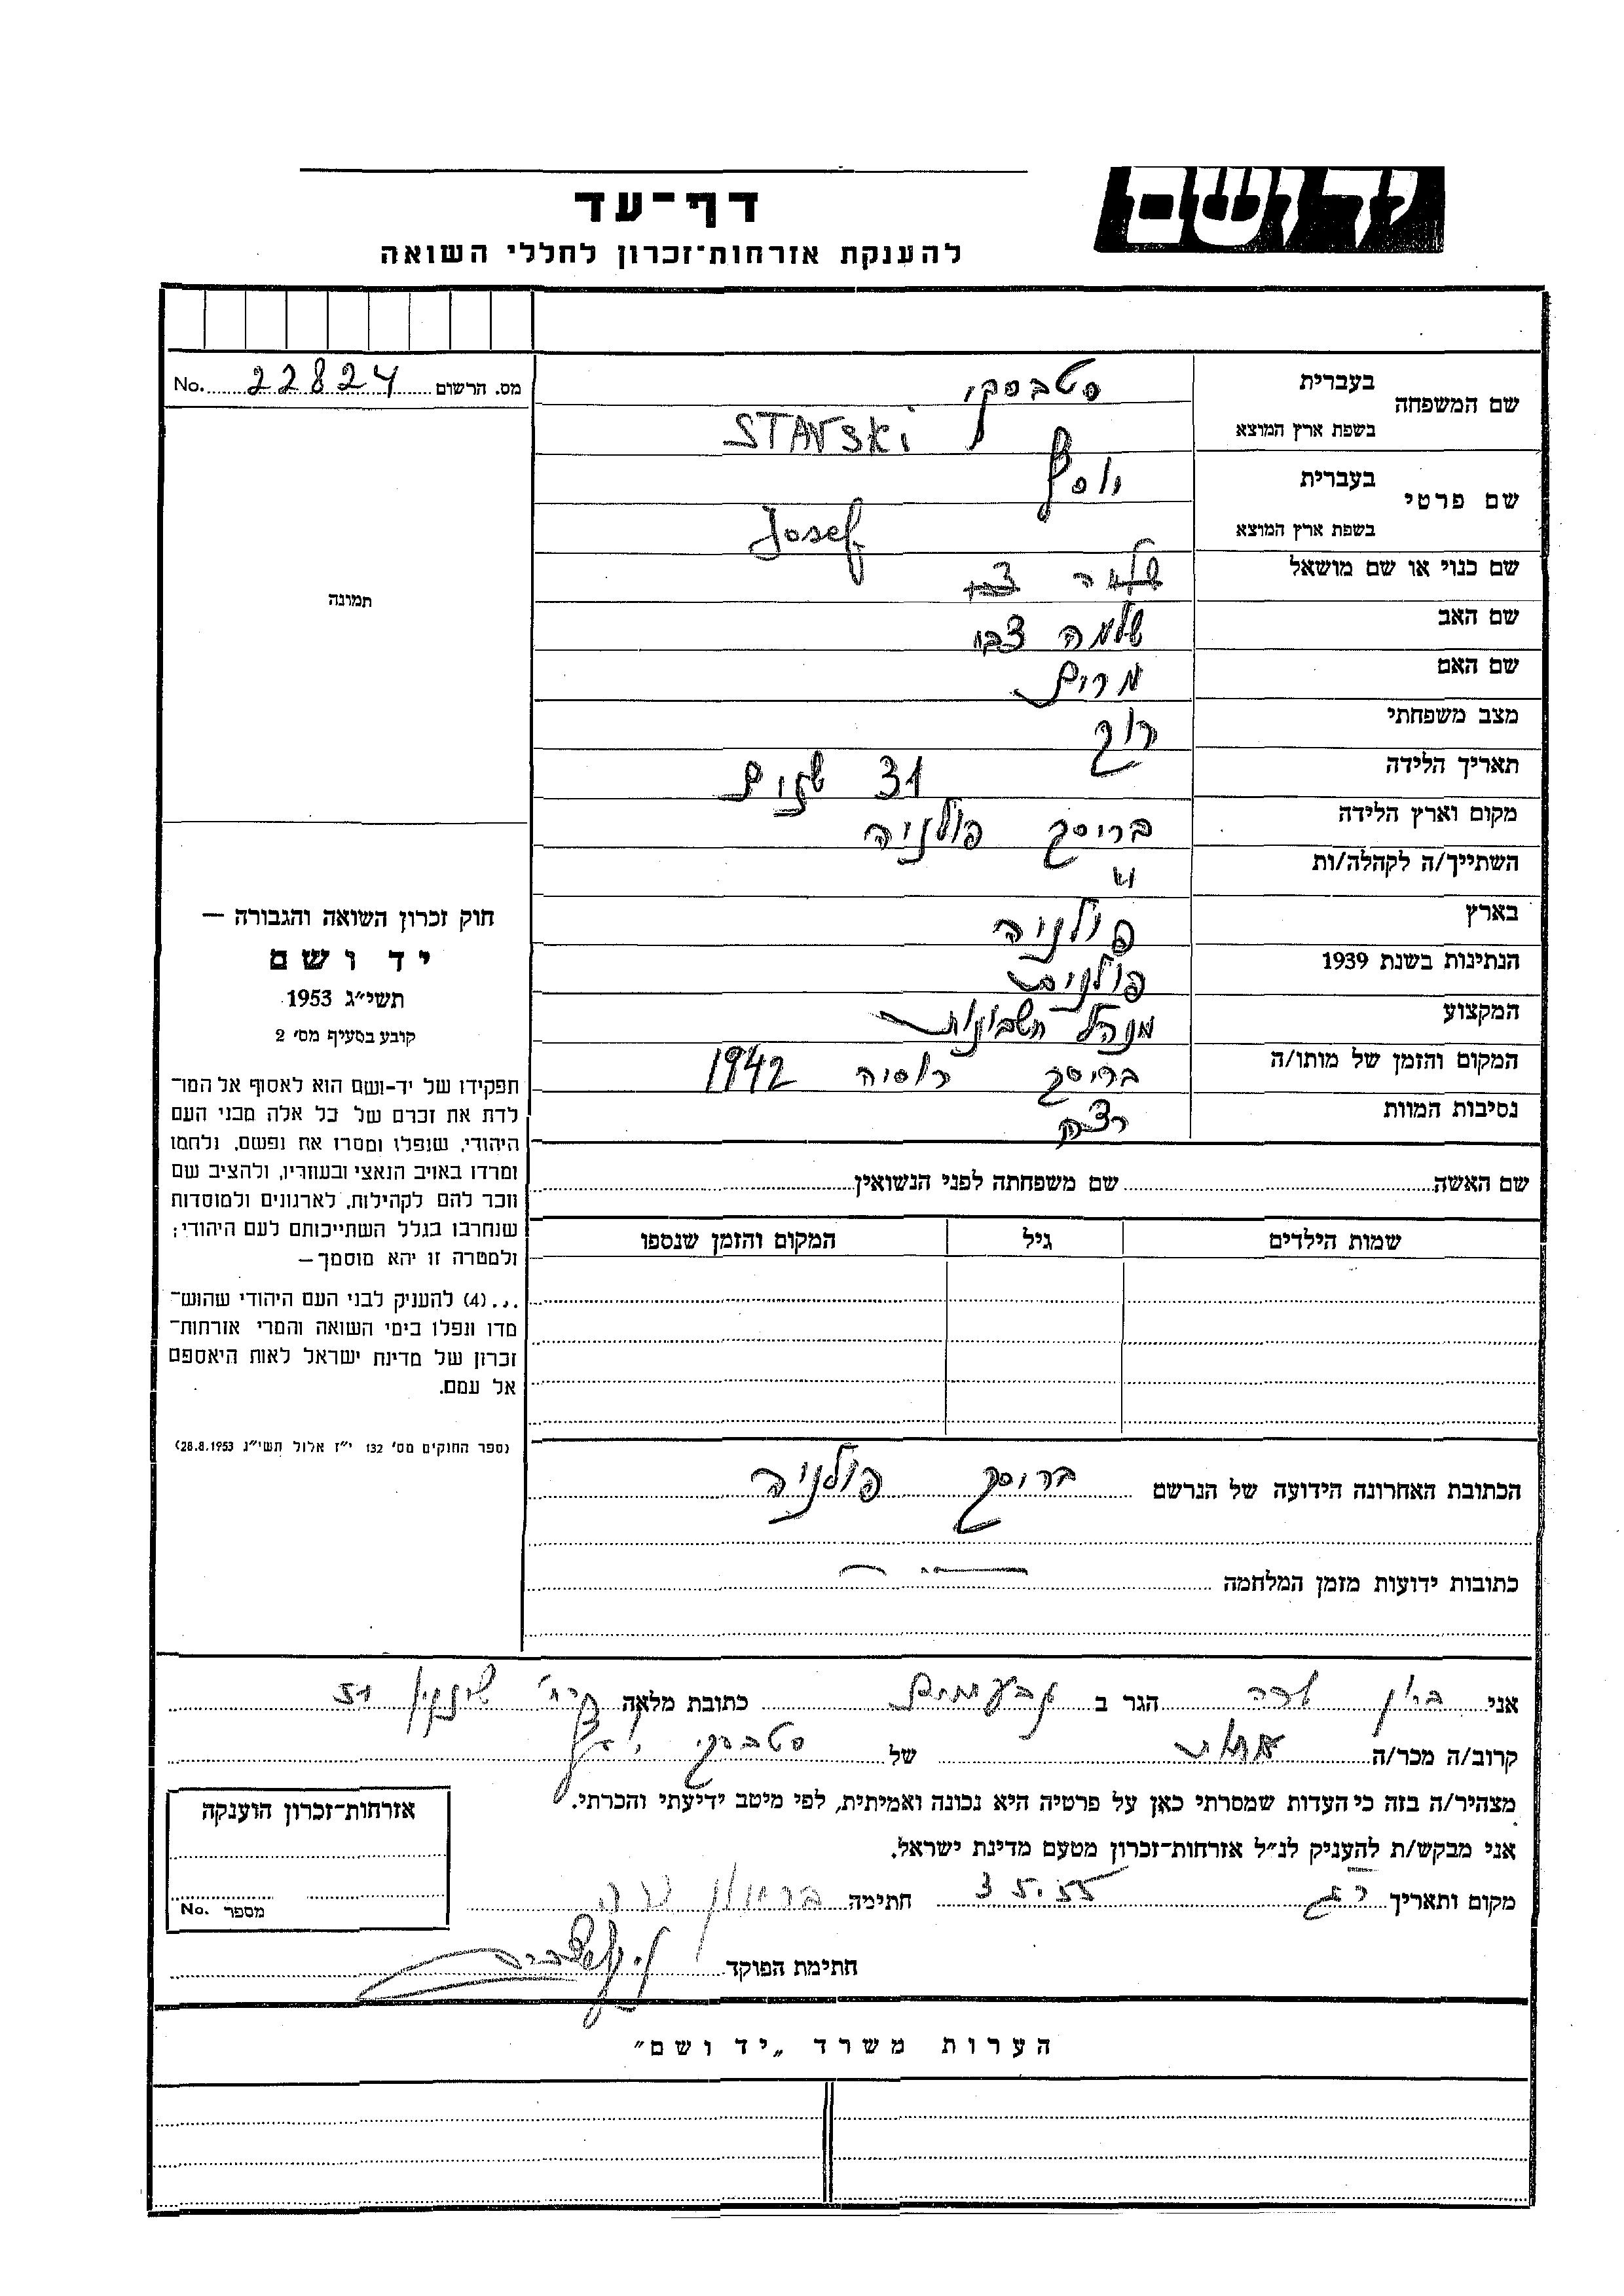 יד ושם
דף־עד
להענקת אזרחות־זכרון לחללי השואה
מס. הרשום 22824 No.
שם המשפחה בעברית סטבסקי
בשפת ארץ המוצא STAVSKi
שם פרטי בעברית יוסף
בשפת ארץ המוצא Josef
שם כנוי או שם מושאל
שם האב שלמה צבי
שם האם מרים
מצב משפחתי רוק
תאריך הלידה 31 שנים
מקום וארץ הלידה בריסק פולניה
השתייך/ה לקהלה/ות
בארץ פולניה
הנתינות בשנת 1939 פולנית
המקצוע מנהל חשבונות
המקום והזמן של מותו/ה בריסק רוסיה 1942
נסיבות המוות
תמונה
חוק זכרון השואה והגבורה —
יד ושם
תשי״ג 1953
קובע בסעיף מס׳ 2
תפקידו של יד־ושם הוא לאסוף אל המו־
לדת את זכרם של כל אלה מבני העם
היהודי, שנפלו ומסרו את נפשם, נלחמו
ומרדו באויב הנאצי ובעוזריו, ולהציב שם
וזכר להם לקהילות, לארגונים ולמוסדות
שנחרבו בגלל השתייכותם לעם היהודי;
ולמטרה זו יהא מוסמך—
...(4) להעניק לבני העם היהודי שהוש־
מדו ונפלו בימי השואה והמרי אזרחות־
זכרון של מדינת ישראל לאות היאספם
אל עמם.
(ספר החוקים מס׳ 132 י״ז אלול תשי״ג 28.8.1953)
שם האשה שם משפחתה לפני הנשואין
שמות הילדים גיל המקום והזמן שנספו
הכתובת האחרונה הידועה של הנרשם בריסק פולניה
כתובות ידועות מזמן המלחמה
אני הגר ב גבעתיים כתובת מלאה 51
קרוב/ה מכר/ה אחות של סטבסקי יוסף
מצהיר/ה בזה כי העדות שמסרתי כאן על פרטיה היא נכונה ואמיתית, לפי מיטב ידיעתי והכרתי.
אני מבקש/ת להעניק לנ״ל אזרחות־זכרון מטעם מדינת ישראל.
מקום ותאריך ר״ג 3.5.55 חתימה
חתימת הפוקד
אזרחות־זכרון הוענקה
מספר No.
הערות משרד „יד ושם״